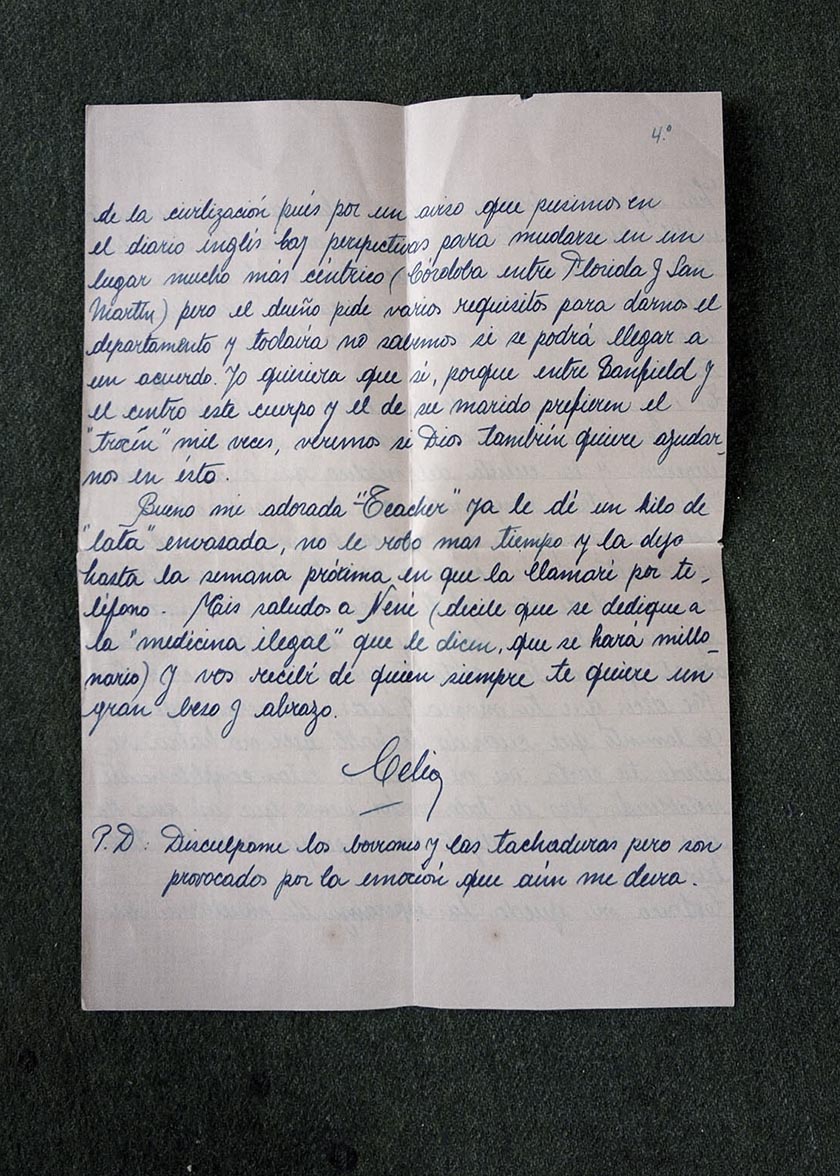 4.º
de la civilización pués por un aviso que pusimos en
el diario inglés hay perspectivas para mudarse en un
lugar mucho más céntrico (Córdoba entre Florida y San
Martín) pero el dueño pide varios requisitos para darnos el
departamento y todavía no sabemos si se podrá llegar a
un acuerdo. Yo quisiera que sí, porque entre Banfield y
el centro este cuerpo y el de su marido prefieren el
"trocén" mil veces, veremos si Dios también quiere ayudar-
nos en ésto.
Bueno mi adorada "Teacher" ya le dí un kilo de
"lata" envasada, no le robo mas tiempo y la dejo
hasta la semana próxima en que la llamaré por te-
léfono. Mis saludos a Nene (decile que se dedique a
la "medicina ilegal" que le dicen, que se hará millo-
nario) Y vos recibí de quien siempre te quiere un
gran beso y abrazo.
Celia
P.D: Disculpame los borrones y las tachaduras pero son
provocados por la emoción que aún me dura.